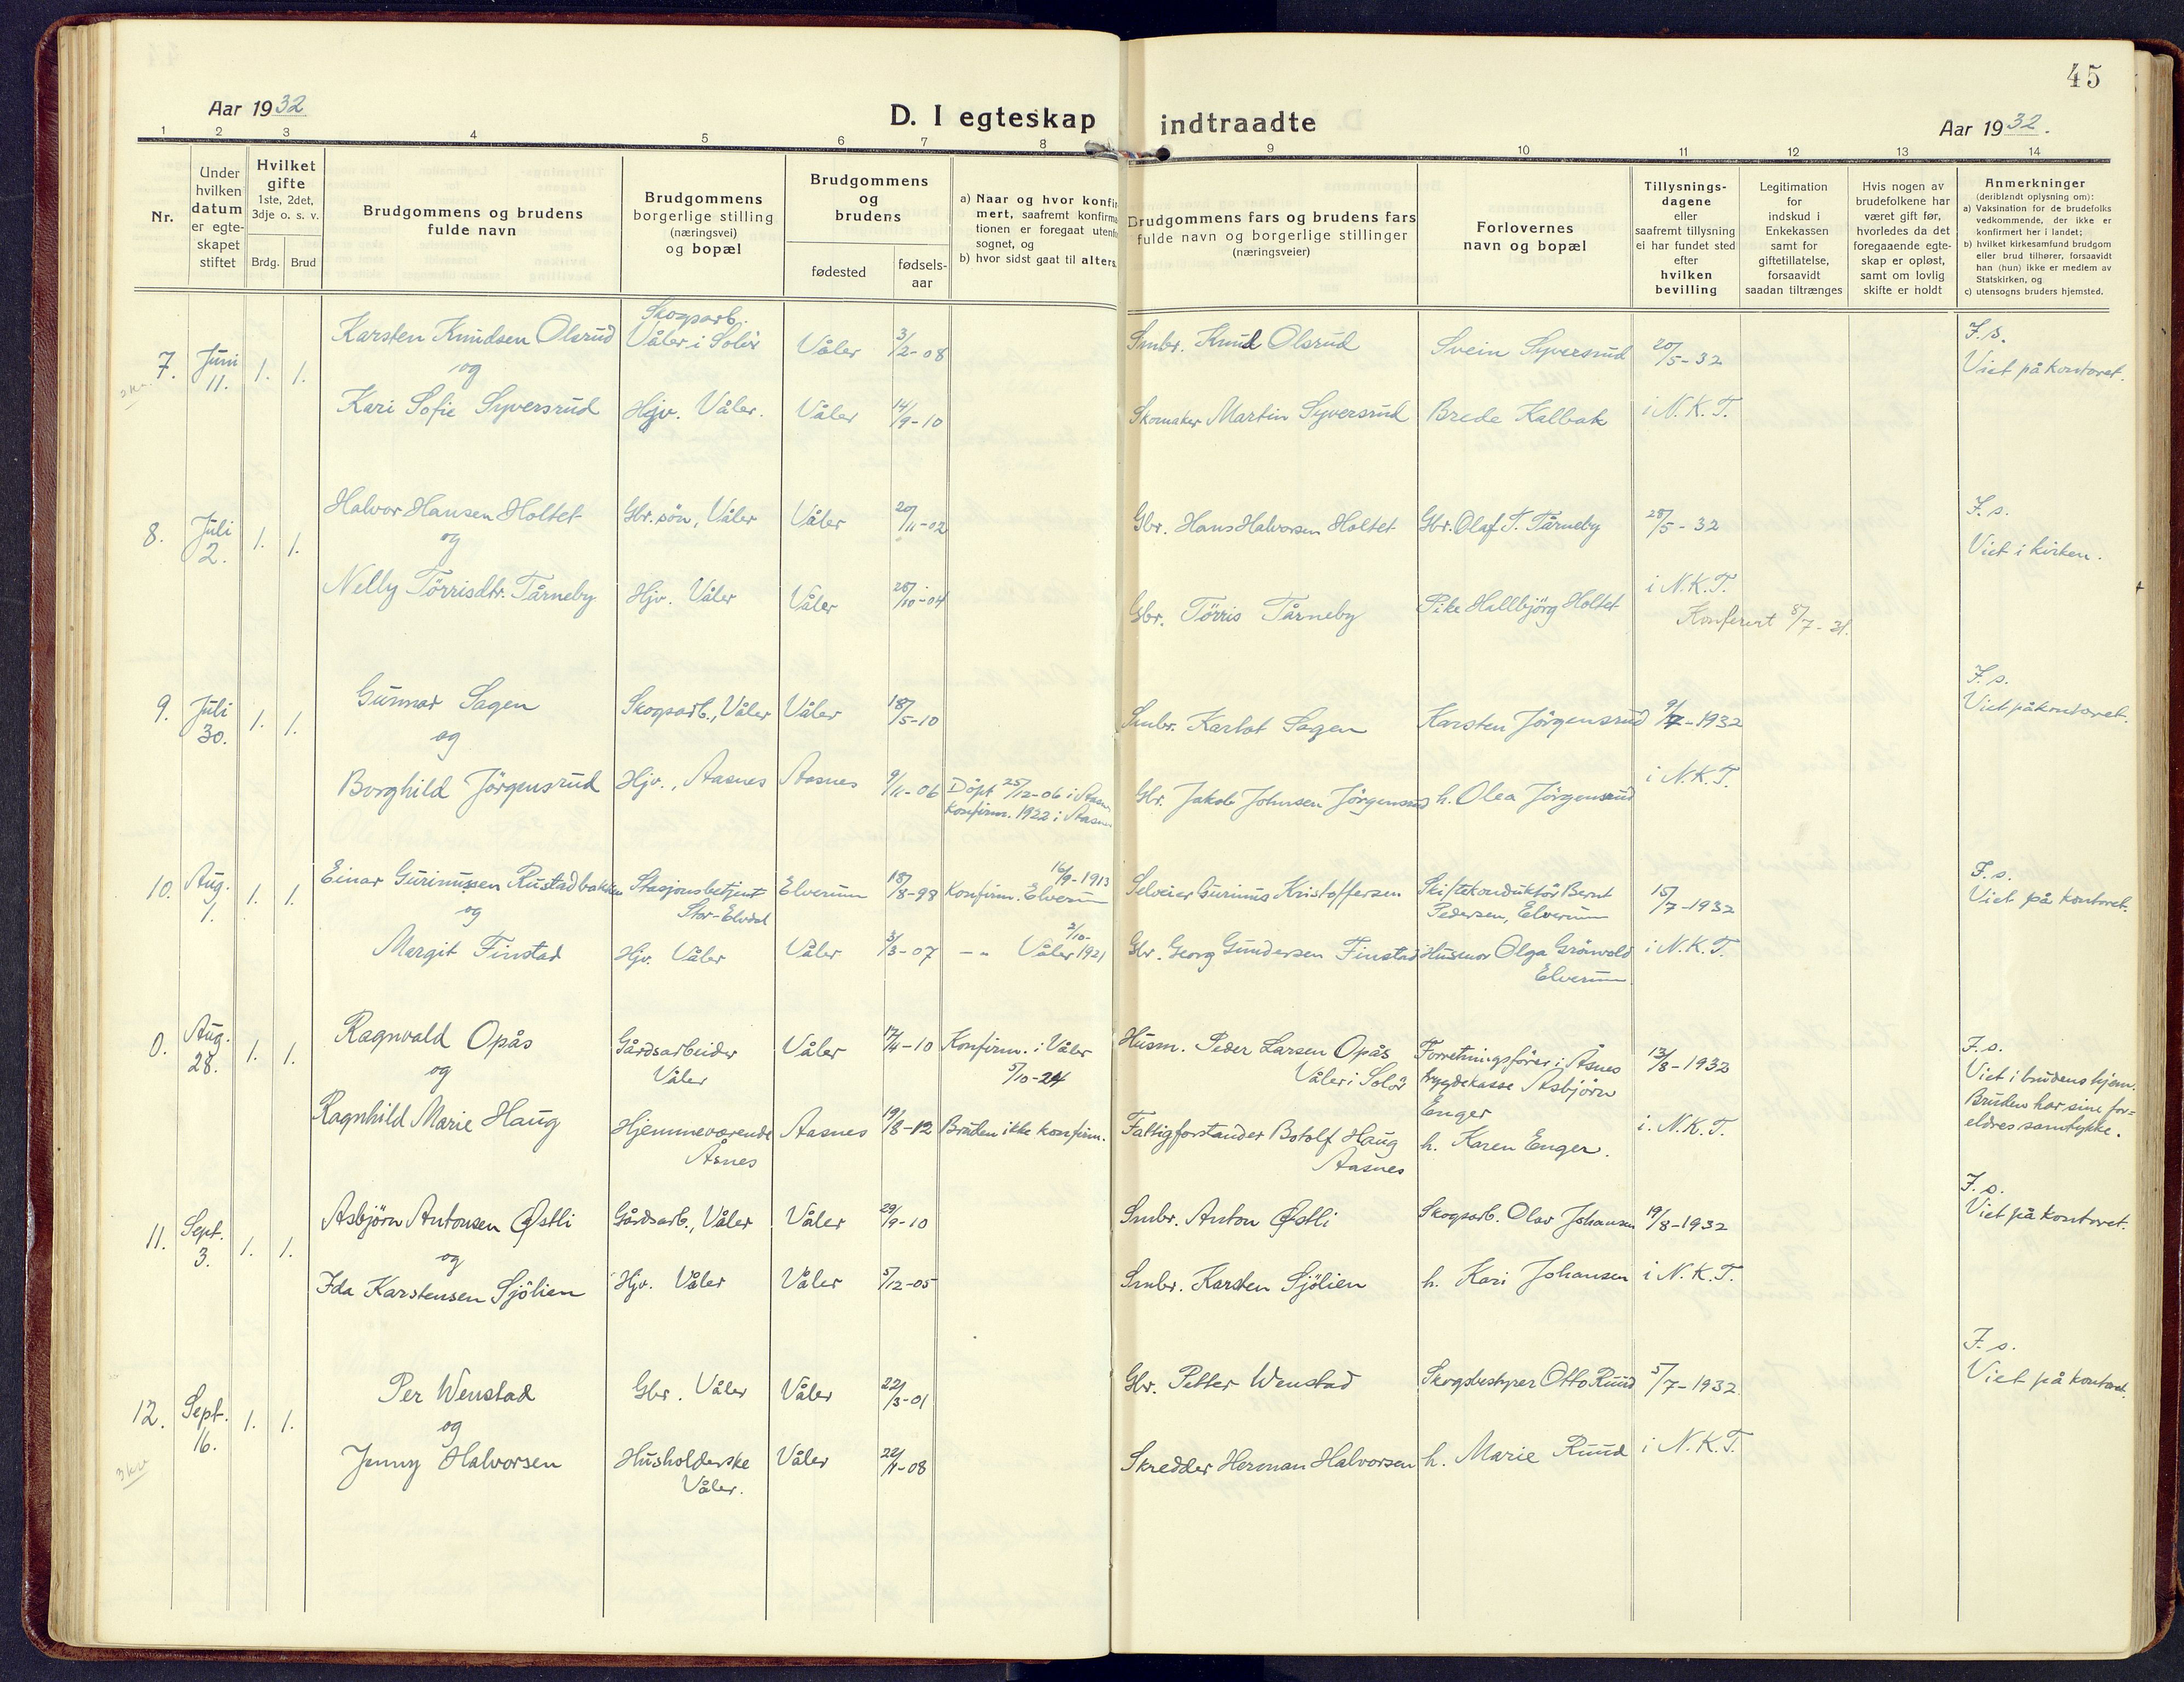 45
Aar 1932
D. I egteskap indtraadte
Aar 1932.
1 2 3 4 5 6 7 8 9 10 11 12 13 14
Nr.
Under
hvilken
datum
er egte-
skapet
stiftet
Hvilket
gifte
1ste, 2det,
3dje o. s. v.
Brdg. Brud
Brudgommens og brudens
fulde navn
Brudgommens
borgerlige stilling
(næringsvei)
og bopæl
Brudgommens
og
brudens
fødested
fødsels-
aar
a) Naar og hvor konfir
mert, saafremt konfirma
tionen er foregaat utenfo
sognet, og
b) hvor sidst gaat til alters
Brudgommens fars og brudens fars
fulde navn og borgerlige stillinger
(næringsveier)
Forlovernes
navn og bopæl
Tillysnings-
dagene
eller
saafremt tillysning
ei har fundet sted
efter
hvilken
bevilling
Legitimation
for
indskud i
Enkekassen
samt for
giftetillatelse,
forsaavidt
saadan tiltrænges
Hvis nogen av
brudefolkene har
været gift før,
hvorledes da det
foregaaende egte-
skap er opløst,
samt om lovlig
skifte er holdt
Anmerkninger
(deriblandt oplysning om):
a) Vaksination for de brudefolks
vedkommende, der ikke er
konfirmert her i landet;
b) hvilket kirkesamfund brudgom
eller brud tilhører, forsaavidt
han (hun) ikke er medlem av
Statskirken, og
c) utensogns bruders hjemsted.
7. Juni 11. 1. 1.
Karsten Knudsen Olsrud
og
Kari Sofie Syversrud
Skogsarb.
Våler i Solør
Hjv. Våler.
Våler 3/2-08
Våler 14/9-10
Smbr. Knud Olsrud
Skomaker Martin Syversrud
Svein Syversrud
Brede Kalbak
20/5-32
i N.K.T.
F.s.
Viet på kontoret.
8. Juli 2. 1. 1.
Halvor Hansen Holtet
og
Nelly Törrisdtr. Tårneby
Gbr. sön, Våler
Hjv. Våler
Våler 20/11-02
Våler 28/10-04
Gbr. Hans Halvorsen Holtet
Gbr. Törris Tårneby
Gbr. Olaf T. Tårneby
Pike Hallbjörg Holtet
28/5-32
i N.K.T.
Konferert 8/7-31.
F.s.
Viet i kirken.
9. Juli 30. 1. 1.
Gunnar Sagen
og
Borghild Jörgensrud
Skogsarb., Våler
Hjv., Aasnes
Våler 18/5-10
Aasnes 9/11-06
Döpt 25/12-06 i Aasn
Konfirm. 1922 i Aasnes
Smbr. Karlot Sagen
Gbr. Jakob Johnsen Jörgensrud
Karsten Jörgensrud
h. Olea Jörgensrud
9/7-1932
i N.K.T.
F.s.
Viet på kontoret.
10. Aug. 1. 1. 1.
Einar Gurinussen Rustadbakken
og
Margit Finstad
Stasjonsbetjent
Stor-Elvdal
Hjv. Våler
Elverum 18/8-98
Våler 3/3-07
Konfirm. Elverum 16/9-1913
-"- Våler 2/10-1921
Selveier Gurinus Kristoffersen
Gbr. Georg Gundersen Finstad
Skiftekonduktör Bernt
Pedersen, Elverum
Husmor Olga Grönvold
Elverum
15/7-1932
i N.K.T.
F.s.
Viet på kontoret.
0. Aug. 28. 1. 1.
Ragnvald Opås
og
Ragnhild Marie Haug
Gårdsarbeider
Våler
Hjemmeværende
Åsnes
Våler 17/4-10
Aasnes 19/8-12
Konfirm. i Våler
5/10-24
Bruden ikke konfirm.
Husm. Peder Larsen Opås
Våler i Solör
Fattigforstander Botolf Haug
Aasnes
Forretningsförer i Åsnes
trygdekasse Asbjörn
Enger
h. Karen Enger.
13/8-1932
i. N.K.T.
F.s.
Viet i brudens hjem.
Bruden har sine for=
eldres samtykke.
11. Sept. 3. 1. 1.
Asbjörn Antonsen Østli
og
Ida Karstensen Sjölien
Gårdsarb., Våler
Hjv. Våler
Våler 29/9-10
Våler 5/12-05
Smbr. Anton Østli
Smbr. Karsten Sjölien
Skogsarb. Olav Johansen
h. Kari Johansen
19/8-1932
i N.K.T.
F.s.
Viet på kontoret.
12. Sept. 16. 1. 1.
Per Wenstad
og
Jenny Halvorsen
Gbr. Våler
Husholderske
Våler.
Våler 22/3-01
Våler 22/1-08
Gbr. Petter Wenstad
Skredder Herman Halvorsen
Skogsbestyrer Otto Ruud
h. Marie Ruud
5/7-1932
i N.K.T.
F.s.
Viet på kontoret.